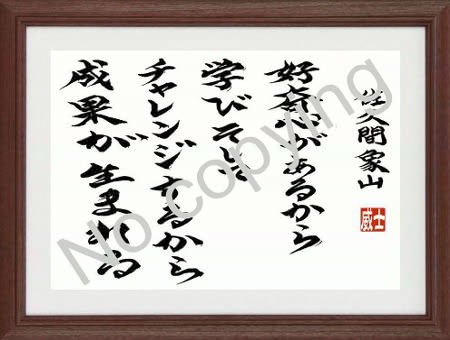 佐久間象山
威士
好奇心があるから
学びそして
チャレンジするから
成果が生まれる
No copying